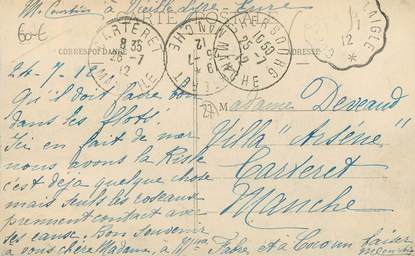 M. Courtin à Vieille Lyre - Eure
CARTE POSTALE
CORRESPONDANCE
ADRESSE
60-E
CARTERET
8 35
26-7
12
MANCHE
CHERBOURG
16 30
25-7
12
MANCHE
LAIGLE
12
24-7-12
Qu'il doit faire bon
dans les flots!
Ici en fait de mer
nous avons la Risle
c'est déjà quelque chose
mais seuls les roseaux
prennent contact avec
ses eaux. Bon souvenir
à vous chère Madame, à Mme Fabre et à Cocoun
Madame Deveaud
Villa "Arsène"
Carteret
Manche